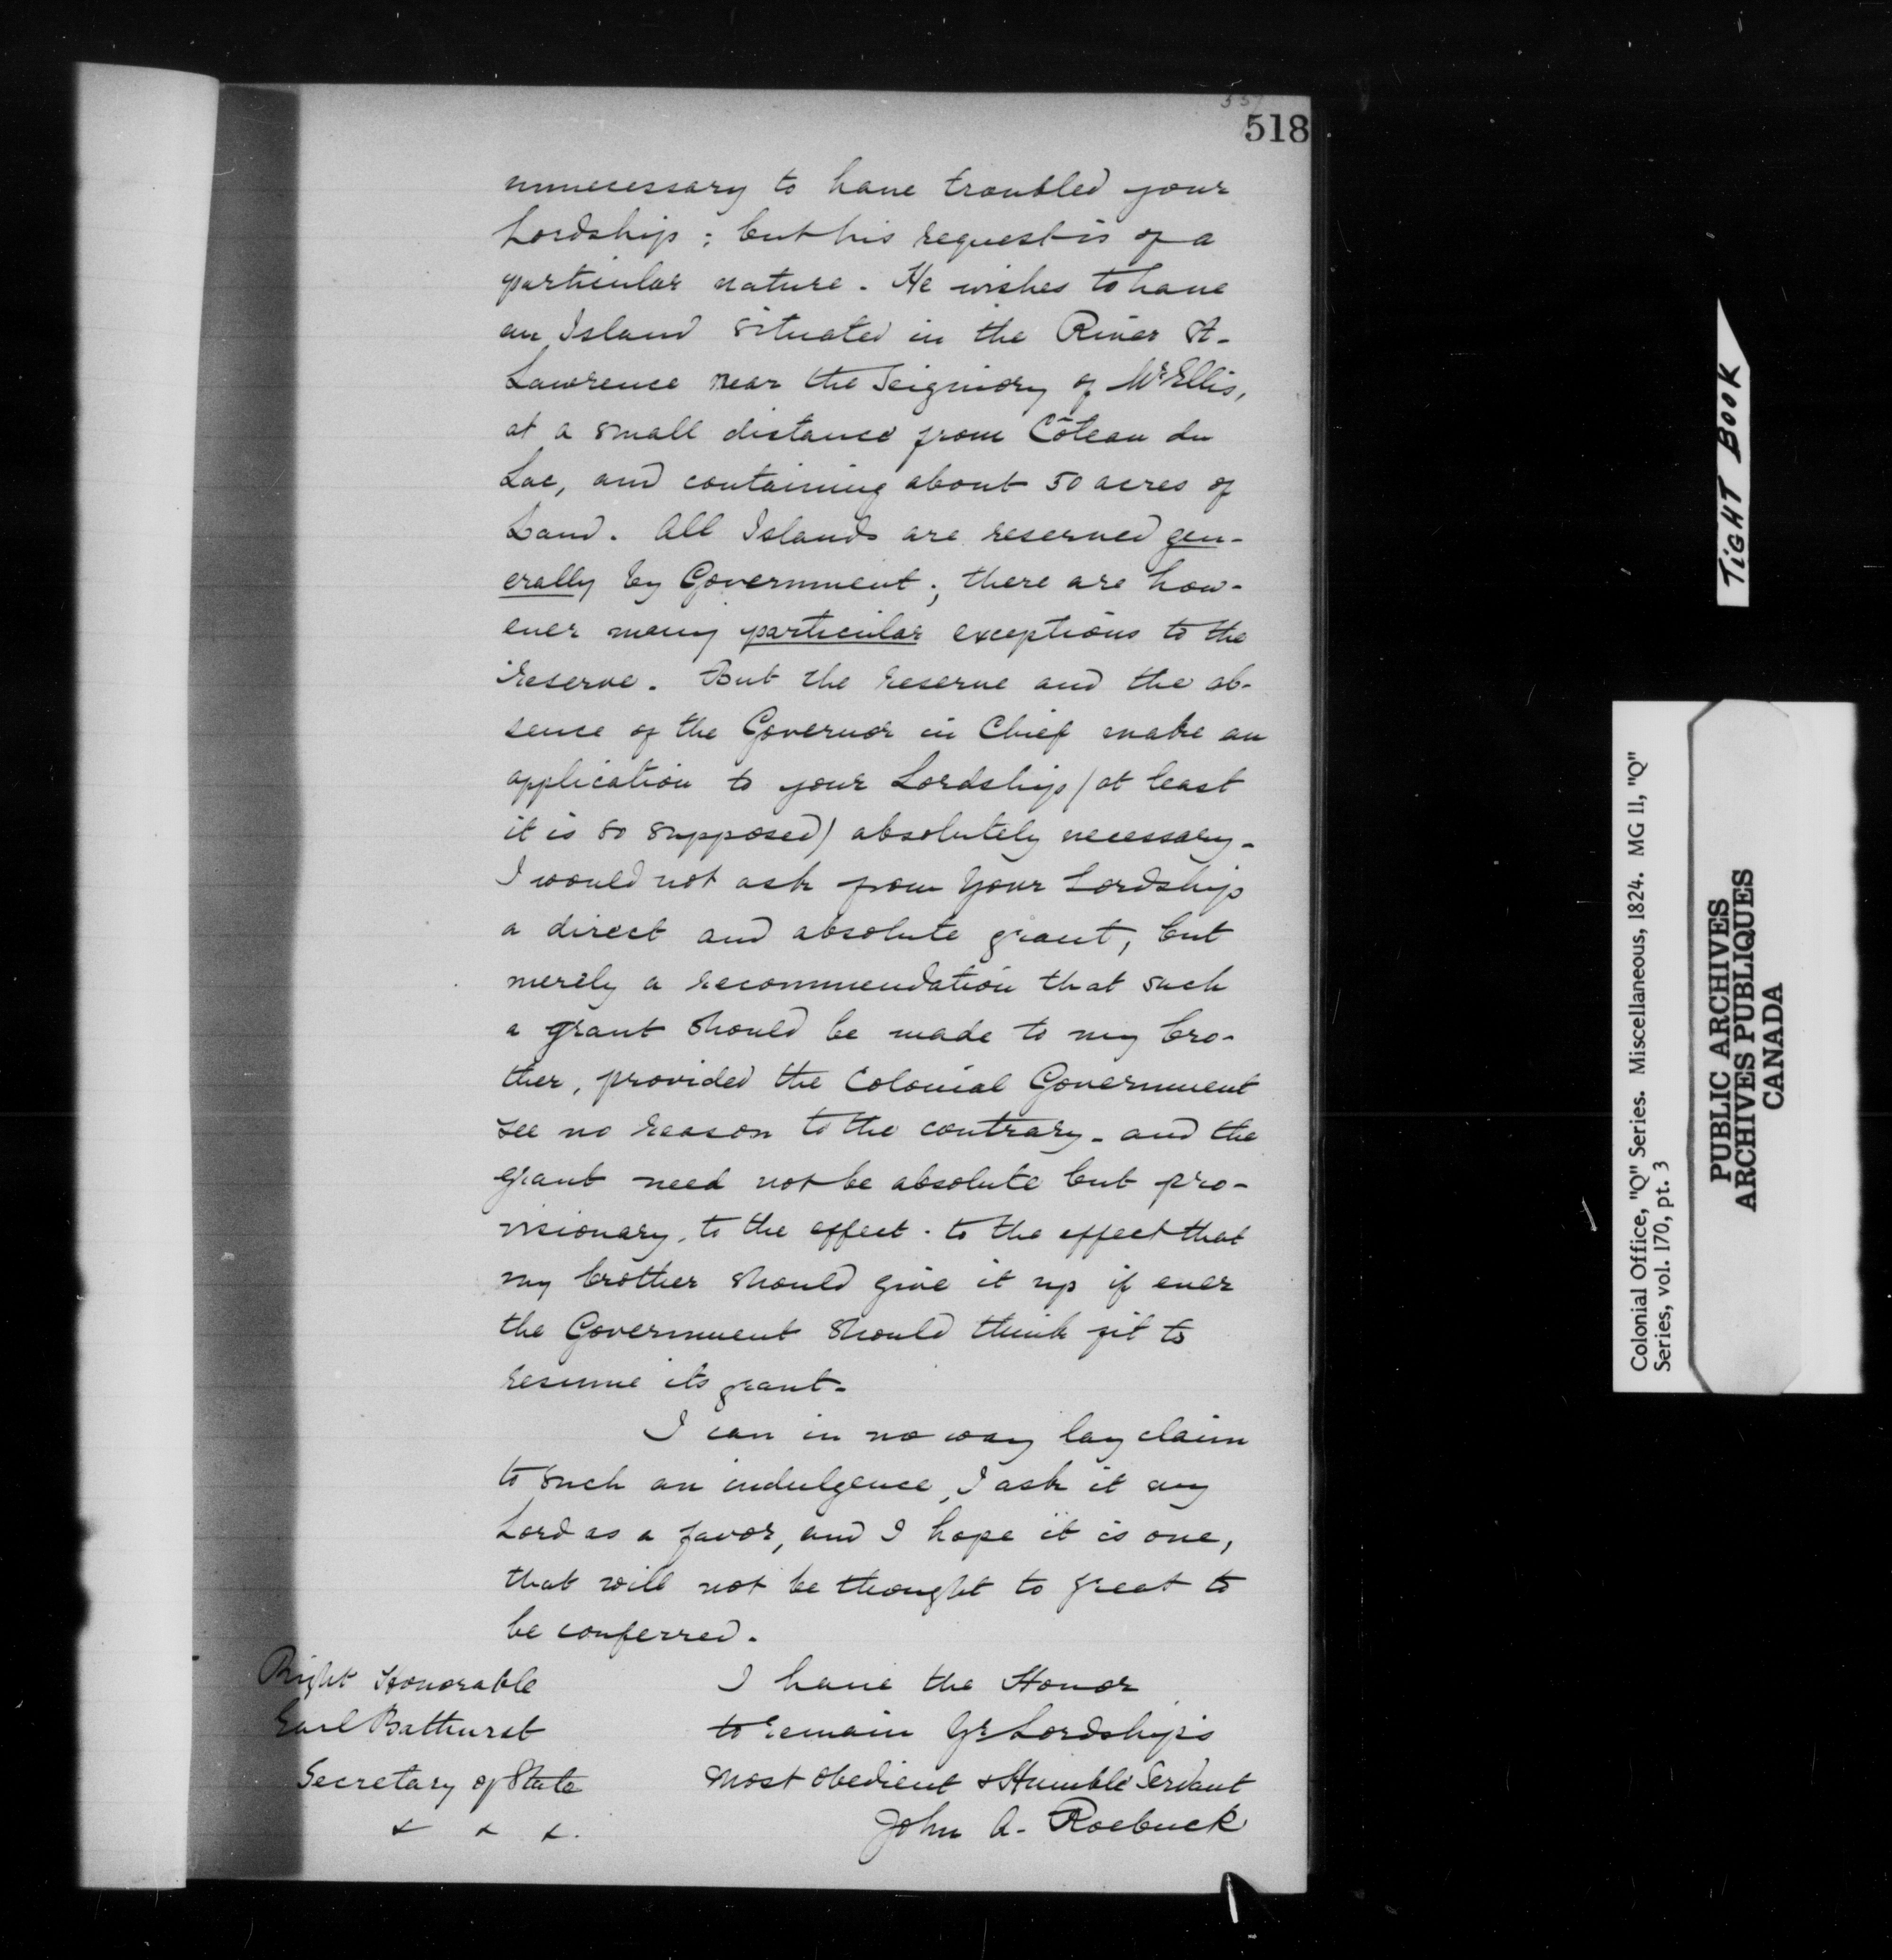 518
unnecessary to have troubled your
Lordship; but his request is of a
particular nature. He wishes to have
an Island situated in the River St.
Lawrence near the Seigniory of Mr Ellis,
at a small distance from Côteau du
Lac, and containing about 50 acres of
Land. All Islands are reserved gen-
erally by Government; there are how-
ever many particular exceptions to the
reserve. But the reserve and the ab-
sence of the Governor in Chief make an
application to your Lordship (at least
it is so supposed) absolutely necessary.
I would not ask from your Lordship
a direct and absolute grant, but
merely a recommendation that such
a grant should be made to my bro-
ther, provided the Colonial Government
see no reason to the contrary - and the
grant need not be absolute but pro-
visionary, to the effect - to the effect that
my brother should give it up if ever
the Government should think fit to
resume its grant.
I can in no way lay claim
to such an indulgence, I ask it my
Lord as a favor, and I hope it is one,
that will not be thought to great to
be conferred.
I have the Honor
to remain Yr Lordship's
most obedient & Humble Servant
John A. Roebuck
Right Honorable
Earl Bathurst
Secretary of State
& & &.
TIGHT BOOK
Colonial Office, "Q" Series. Miscellaneous, 1824. MG II, "Q"
Series, vol. 170, pt. 3
PUBLIC ARCHIVES
ARCHIVES PUBLIQUES
CANADA